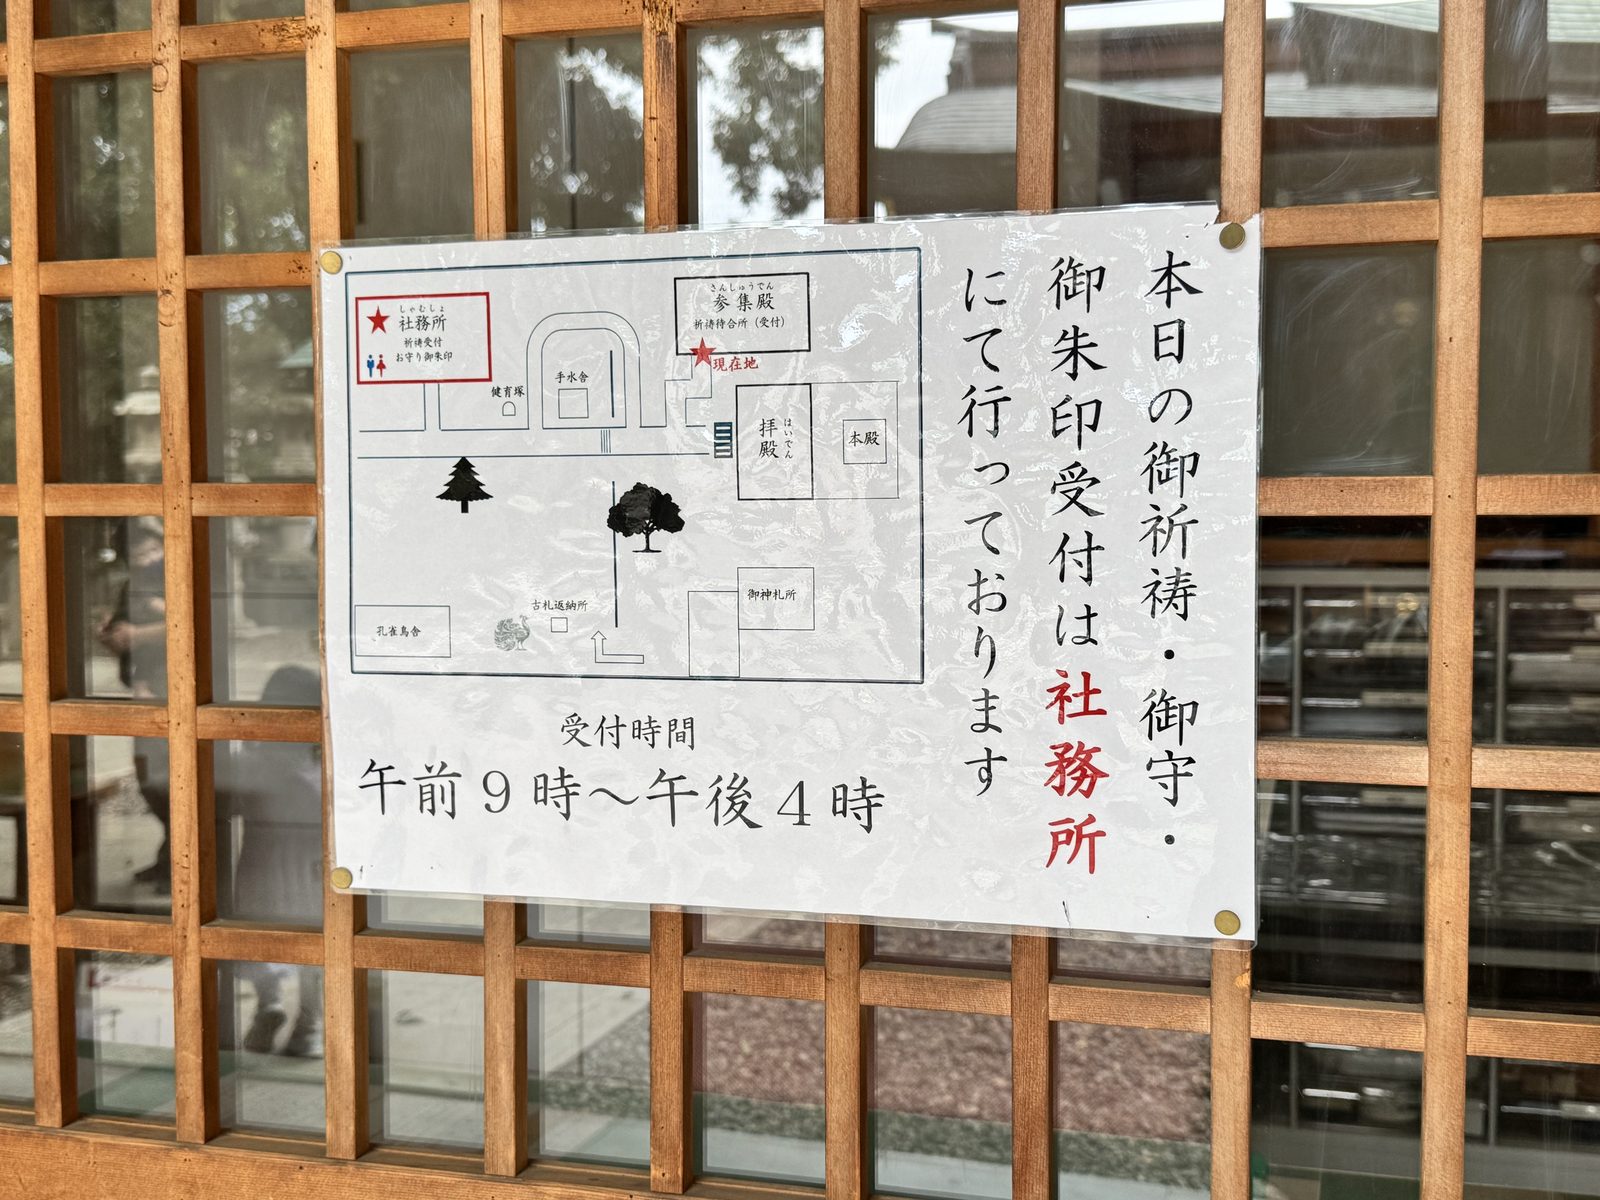 本日の御祈祷・御守・
御朱印受付は社務所
にて行っております
しゃむしょ
社務所
祈祷受付
お守り御朱印
さんしゅうでん
参集殿
祈祷待合所（受付）
現在地
手水舎
健育塚
拝殿
はいでん
本殿
古札返納所
御神札所
孔雀鳥舎
受付時間
午前９時～午後４時